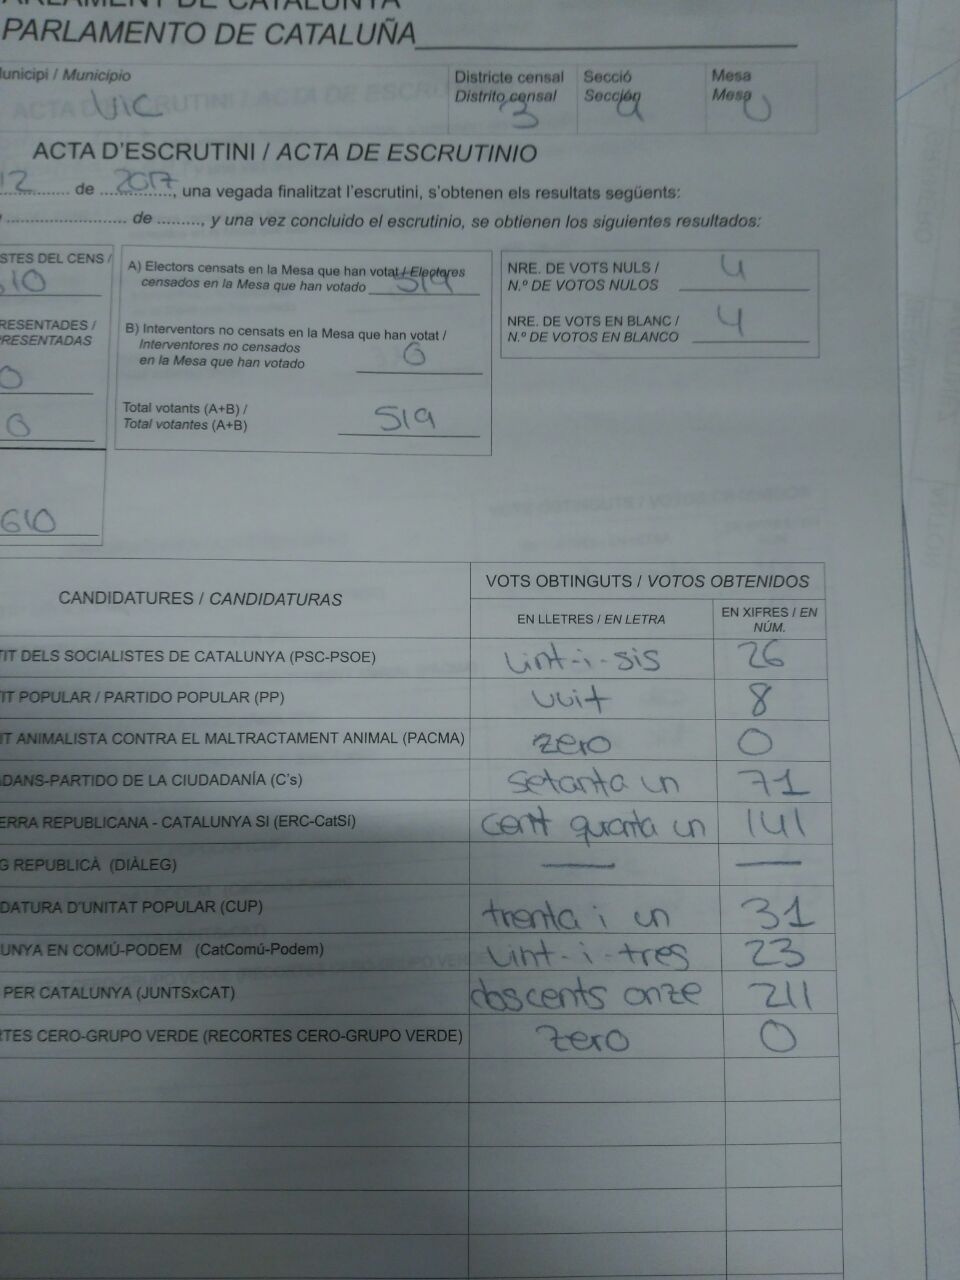 PARLAMENT DE CATALUNYA
PARLAMENTO DE CATALUÑA
Municipi / Municipio
VIC
Districte censal
Distrito censal
3
Secció
Sección
4
Mesa
Mesa
U
ACTA D'ESCRUTINI / ACTA DE ESCRUTINIO
12 de 2017, una vegada finalitzat l'escrutini, s'obtenen els resultats següents:
de ........., y una vez concluido el escrutinio, se obtienen los siguientes resultados:
STES DEL CENS /
610
RESENTADES /
PRESENTADAS
0
0
610
A) Electors censats en la Mesa que han votat / Electores
censados en la Mesa que han votado 519
B) Interventors no censats en la Mesa que han votat /
Interventores no censados
en la Mesa que han votado 0
Total votants (A+B) /
Total votantes (A+B) 519
NRE. DE VOTS NULS /
N.º DE VOTOS NULOS 4
NRE. DE VOTS EN BLANC /
N.º DE VOTOS EN BLANCO 4
CANDIDATURES / CANDIDATURAS
VOTS OBTINGUTS / VOTOS OBTENIDOS
EN LLETRES / EN LETRA
EN XIFRES / EN
NÚM.
TIT DELS SOCIALISTES DE CATALUNYA (PSC-PSOE) vint-i-sis 26
IT POPULAR / PARTIDO POPULAR (PP) vuit 8
IT ANIMALISTA CONTRA EL MALTRACTAMENT ANIMAL (PACMA) zero 0
ADANS-PARTIDO DE LA CIUDADANÍA (C's) setanta un 71
ERRA REPUBLICANA - CATALUNYA SI (ERC-CatSí) cent quranta un 141
G REPUBLICÀ (DIÀLEG) — —
DATURA D'UNITAT POPULAR (CUP) trenta i un 31
UNYA EN COMÚ-PODEM (CatComú-Podem) vint-i-tres 23
PER CATALUNYA (JUNTSxCAT) doscents onze 211
RTES CERO-GRUPO VERDE (RECORTES CERO-GRUPO VERDE) zero 0